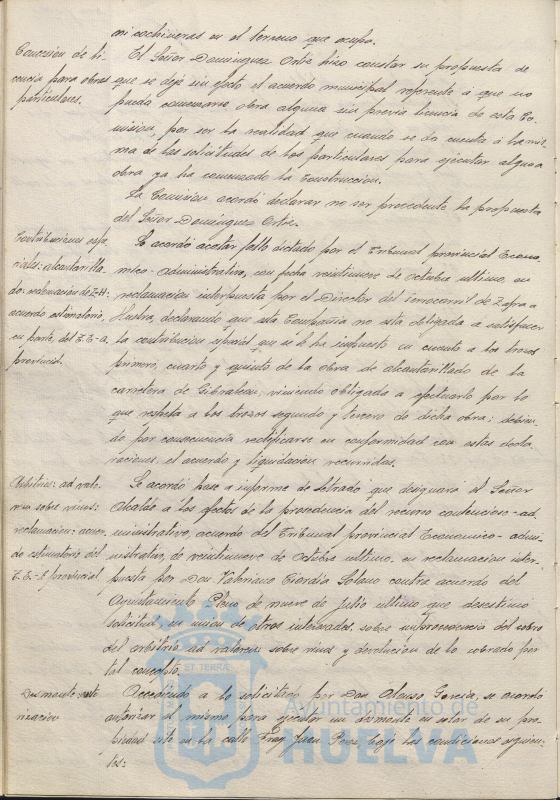 ni cochineras en el terreno que ocupe.
Concesión de li-
cencia para obras
particulares.
El Señor Dominguez Ortiz hizo constar su propuesta de
que se deje sin efecto el acuerdo municipal referente á que no
pueda comenzarse obra alguna sin previa licencia de esta Co-
mision, por ser la realidad que cuando se da cuenta á la mis-
ma de las solicitudes de los particulares para ejecutar alguna
obra ya ha comenzado la construccion.
La Comision acordó declarar no ser procedente la propuesta
del Señor Dominguez Ortiz.
Contribuciones espe-
ciales: alcantarilla-
do: reclamación de Z-H:
acuerdo estimatorio,
en parte, del T. E-a.
provincial.
Se acordó acatar fallo dictado por el Tribunal provincial Econo-
mico-administrativo, con fecha veintinueve de octubre ultimo, en
reclamacion interpuesta por el Director del ferrocarril de Zafra a
Huelva, declarando que esta Compañia no está obligada a satisfacer
la contribucion especial que se le ha impuesto en cuanto a los trozos
primero, cuarto y quinto de la obra de alcantarillado de la
carretera de Gibraleon; viniendo obligada a efectuarlo por lo
que respecta a los trozos segundo y tercero de dicha obra; debien-
do por consecuencia rectificarse en conformidad con estas decla-
raciones, el acuerdo y liquidacion recurridas.
Arbitrios: ad valo-
rem sobre vinos:
reclamacion: acuer-
do estimatorio del
T. E.-a provincial.
Se acordó pase a informe de Letrado que designara el Señor
Alcalde a los efectos de la procedencia del recurso contencioso-ad-
ministrativo, acuerdo del Tribunal provincial Economico-admi-
nistrativo, de veintinueve de Octubre ultimo, en reclamacion inter-
puesta por Don Valeriano Giordia Solano contra acuerdo del
Ayuntamiento Pleno de nueve de julio ultimo que desestimó
solicitud, en union de otros interesados, sobre improcedencia del cobro
del arbitrio ad valorem sobre vinos y devolucion de lo cobrado por
tal concepto.
Desmonte: auto-
rizacion
Accediendo a lo solicitado por Don Alonso Garcia, se acordó
autorizar al mismo para ejecutar un desmonte en solar de su pro-
piedad sito en la calle Fray Juan Perez, bajo las condiciones siguien-
tes:
ET TERRÆ
Ayuntamiento de
HUELVA